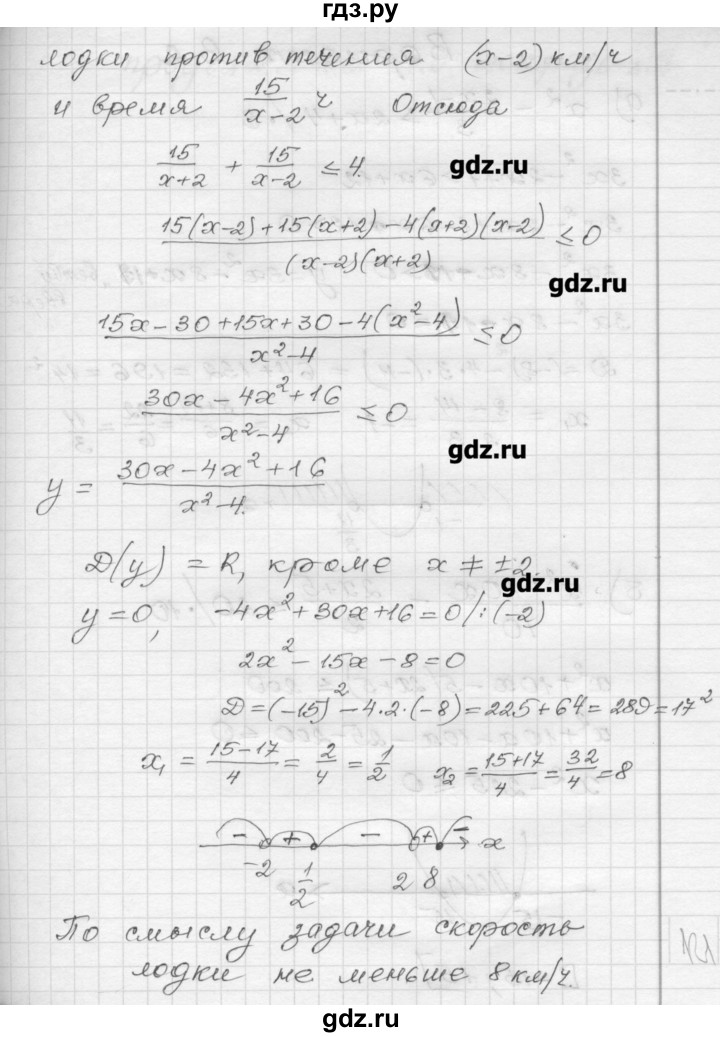 гдз.ру
лодки против течения (x-2) км/ч
и время 15/(x-2) ч Отсюда
15/(x+2) + 15/(x-2) ≤ 4.
gdz.ru
(15(x-2)+15(x+2)-4(x+2)(x-2))/((x-2)(x+2)) ≤ 0
gdz.ru
(15x-30+15x+30-4(x²-4))/(x²-4) ≤ 0
(30x-4x²+16)/(x²-4) ≤ 0
gdz.ru
y = (30x-4x²+16)/(x²-4).
D(y) = R, кроме x ≠ ±2.
gdz.ru
y=0, -4x²+30x+16=0 /:(-2)
2x²-15x-8=0
D=(-15)²-4·2·(-8)=225+64=289=17²
x₁ = (15-17)/4 = 2/4 = 1/2 x₂ = (15+17)/4 = 32/4 = 8
- + - + - x
-2 1/2 2 8
По смыслу задачи скорость
лодки не меньше 8 км/ч.
gdz.ru
gdz.ru